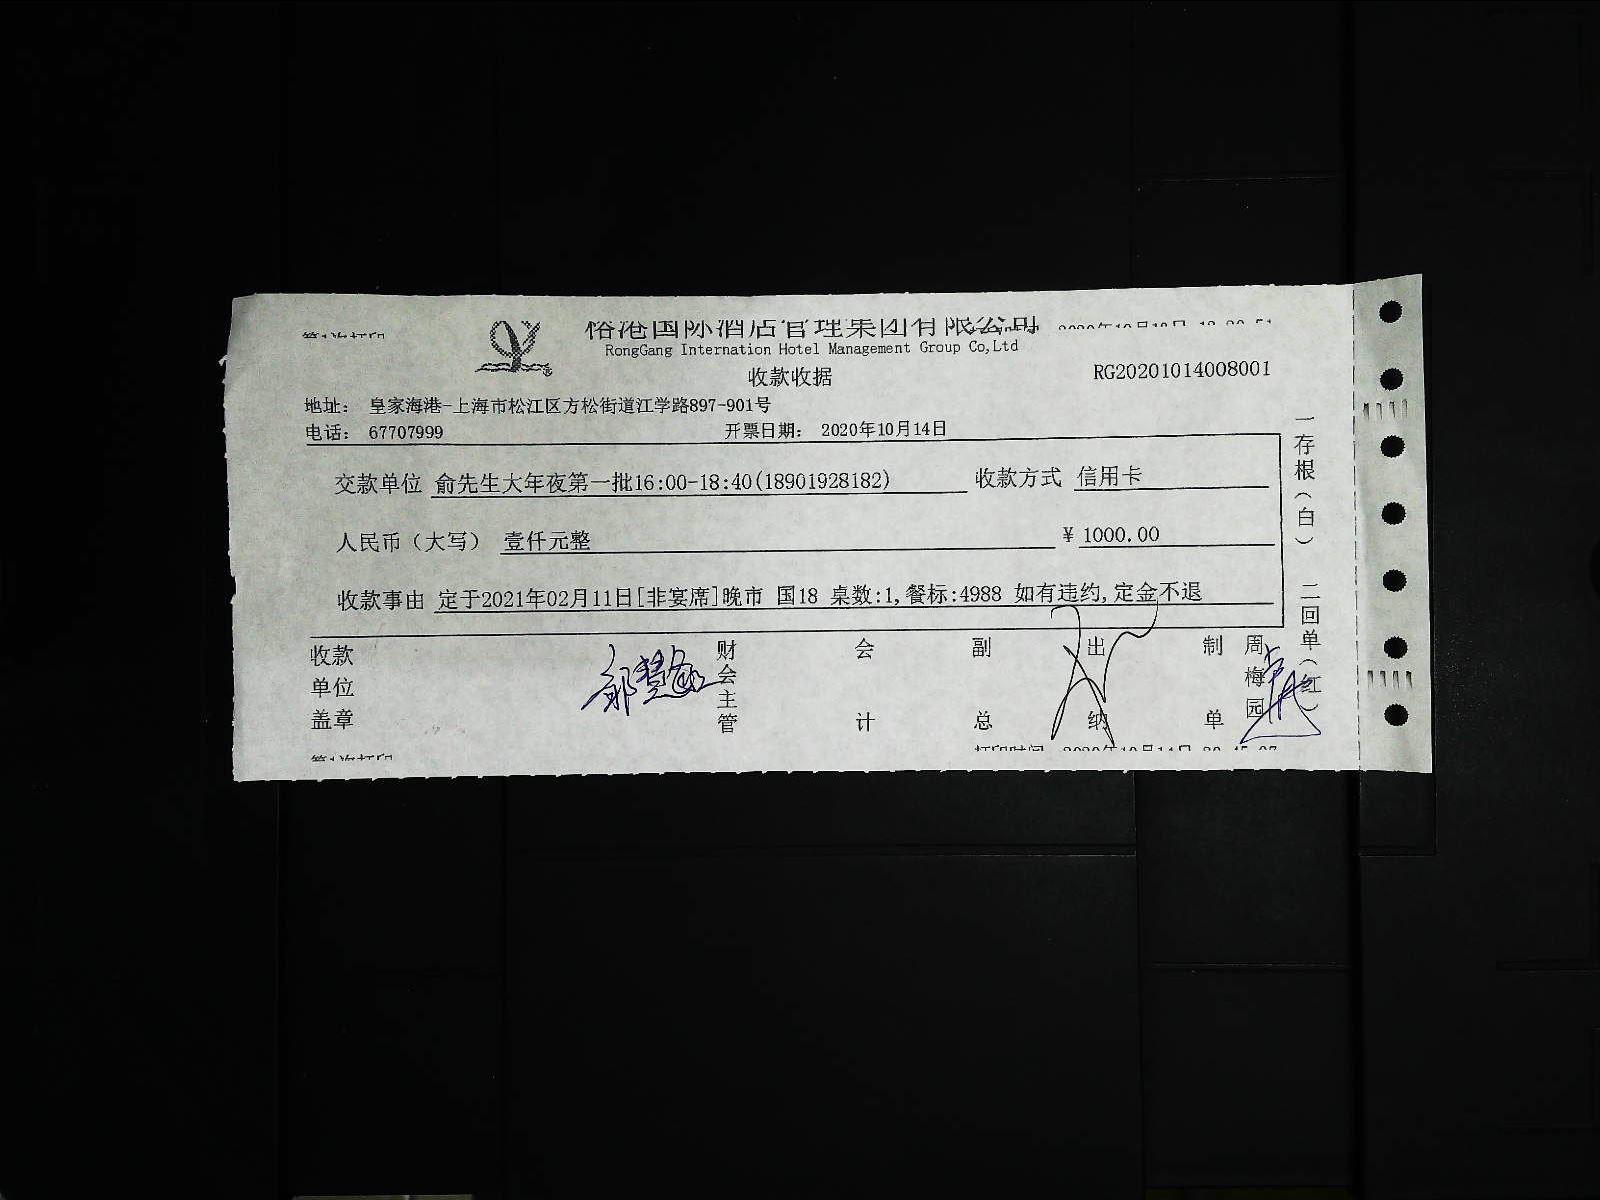 榕港国际酒店管理集团有限公司
RongGang Internation Hotel Management Group Co,Ltd
收款收据
RG20201014008001
地址： 皇家海港-上海市松江区方松街道江学路897-901号
电话： 67707999 开票日期： 2020年10月14日
交款单位 俞先生大年夜第一批16:00-18:40(18901928182) 收款方式 信用卡
人民币（大写） 壹仟元整 ¥ 1000.00
收款事由 定于2021年02月11日[非宴席]晚市 国18 桌数:1,餐标:4988 如有违约,定金不退
收款单位盖章 财会主管 会计 副总 出纳 制单 周梅园
一存根（白） 二回单（红）
第1次打印 打印时间